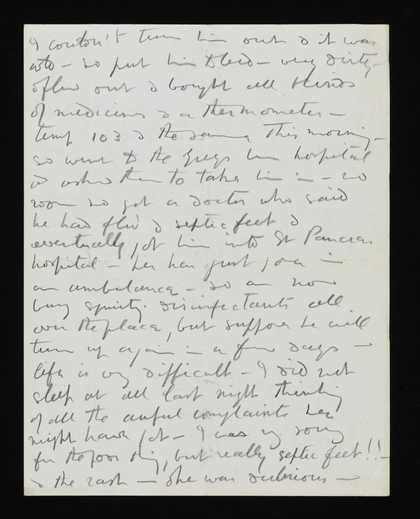 I couldn't turn him out & it was
so put him to bed - very dirty -
flew out & bought all kinds
of medicines & a thermometer -
temp 103 & the same this morning -
so went to the Greys Inn hospital
& asked them to take him in - no
room so got a doctor who said
he had flu & septic feet &
eventually got him into St Pancras
hospital - he has just gone in
an ambulance - so am now
busy disinfectants all
over the place, but suppose he will
turn up again in a few days -
life is very difficult - I did not
sleep at all last night thinking
of all the awful complaints he
might have got - I was very sorry
for the poor thing, but really septic feet!! -
& the rash - she was delirious -